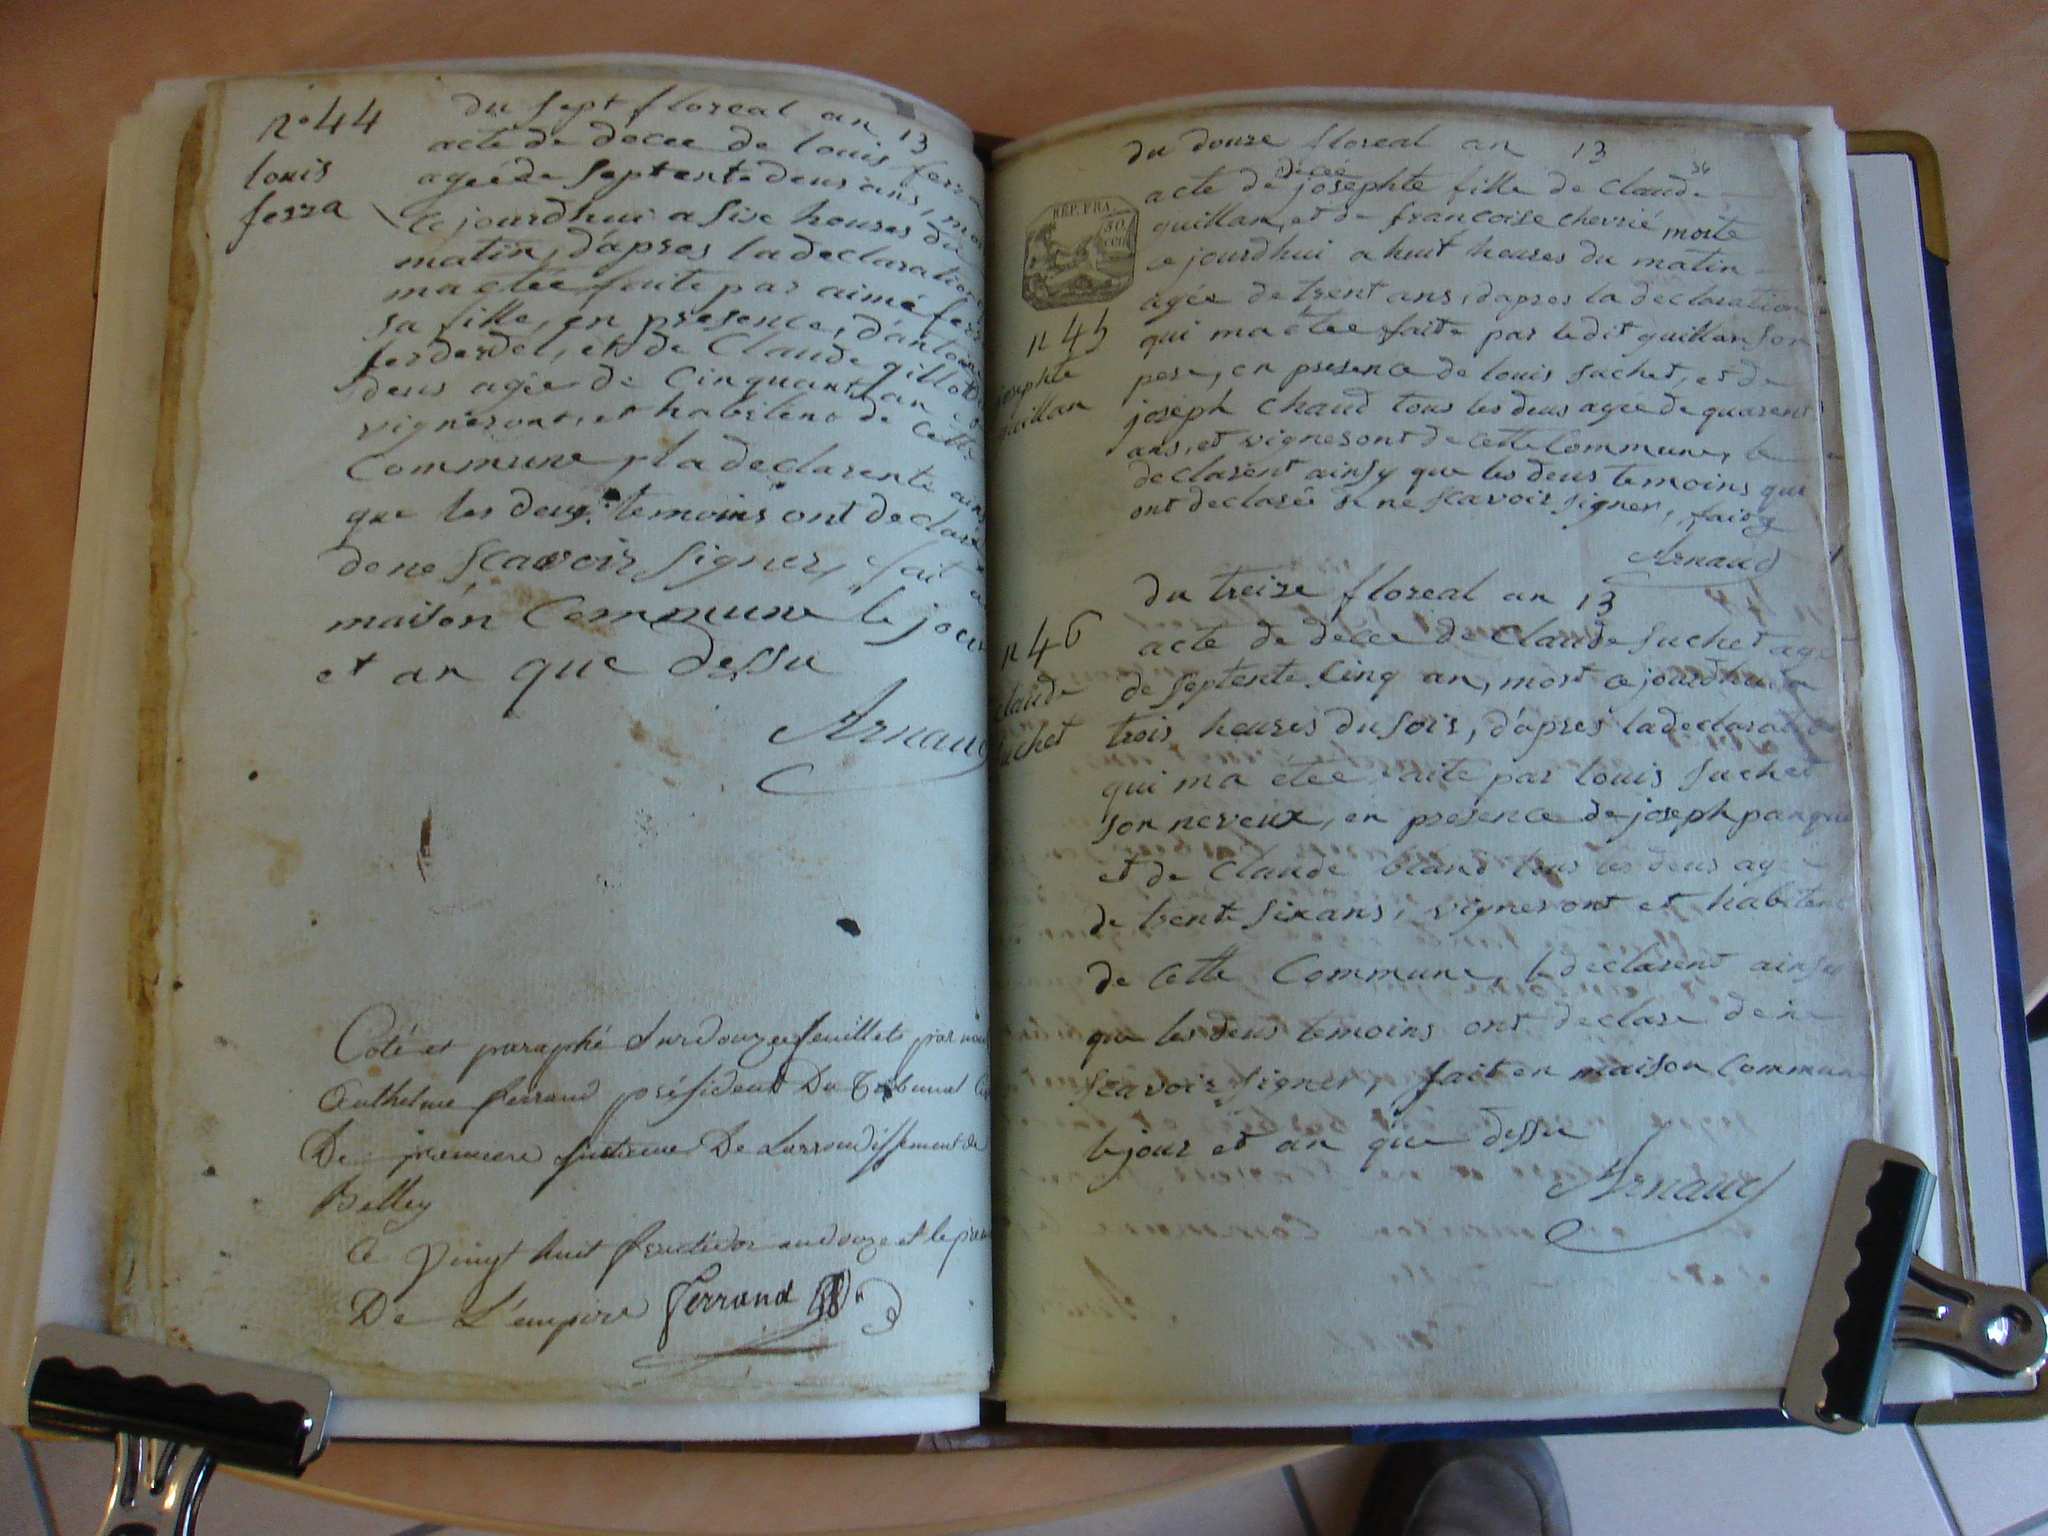 n° 44
louis
ferra
du sept floreal an 13
acte de decee de louis ferra
ageé de septente deus ans, mor
ce jourdhui a sixe heures du
matin, d'apres la declaration
ma etee faite par aimé fer
sa fille, en presence, d'antoine
et de Claude gillot
deus agée de Cinquant an
vigneront, et habitent de cette
Commune, la declarente ains
que les deus temoins ont declare
de ne scavoir signer, fait
maison Commune le jour
et an que dessu
Arnaud
Coté et paraphé sur douze feuillets par nous
Anthelme ferrand président Du Tribunal
De premiere instance De Larrondissement de
Belley
Ce vingt huit fructidor an douze et le pre
De L'empire ferrand
du douze floreal an 13
decée
acte de josephte fille de Claude
guillan, et de francoise chevrié morte
ce jourdhui a huit heures du matin
agée de trent ans, dapres la declaration
qui ma etee faite par ledit guillan son
pere, en presence de louis suchet, et de
joseph Chaud tous les deus agée de quarent
ans, et vigneront de cette Commune, le
declarent ainsy que les deus temoins qui
ont declarée de ne scavoir signer,
Arnaud
REP. FRA.
50
cen
n 45
josephte
guillan
du treize floreal an 13
n 46
claude
suchet
acte de decee de Claude Suchet age
de septente Cinq an, mort ce jourdhui a
trois heures du soir, d'apres la declaratio
qui ma etee faite par louis Suchet
son neveux, en presence de joseph panque
et de Claude bland tous les deus age
de trente six ans, vigneront et habitent
de cette Commune, le declarent ainsy
que les deus temoins ont declare de ne
scavoir signer, fait en maison Commune
le jour et an que dessu
Arnaud